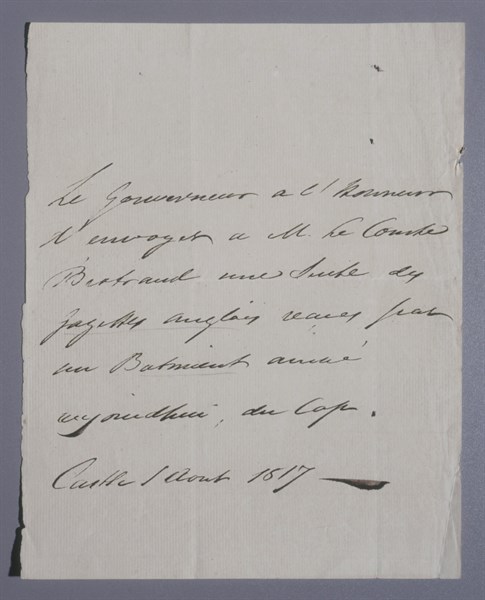 Le Gouverneur a l'Honneur
d'envoyer a M. le Comte
Bertrand une Suite des
gazettes anglois recues par
un Batiment arrivé
aujourdhui, du Cap.
Castle 1 Aout 1817